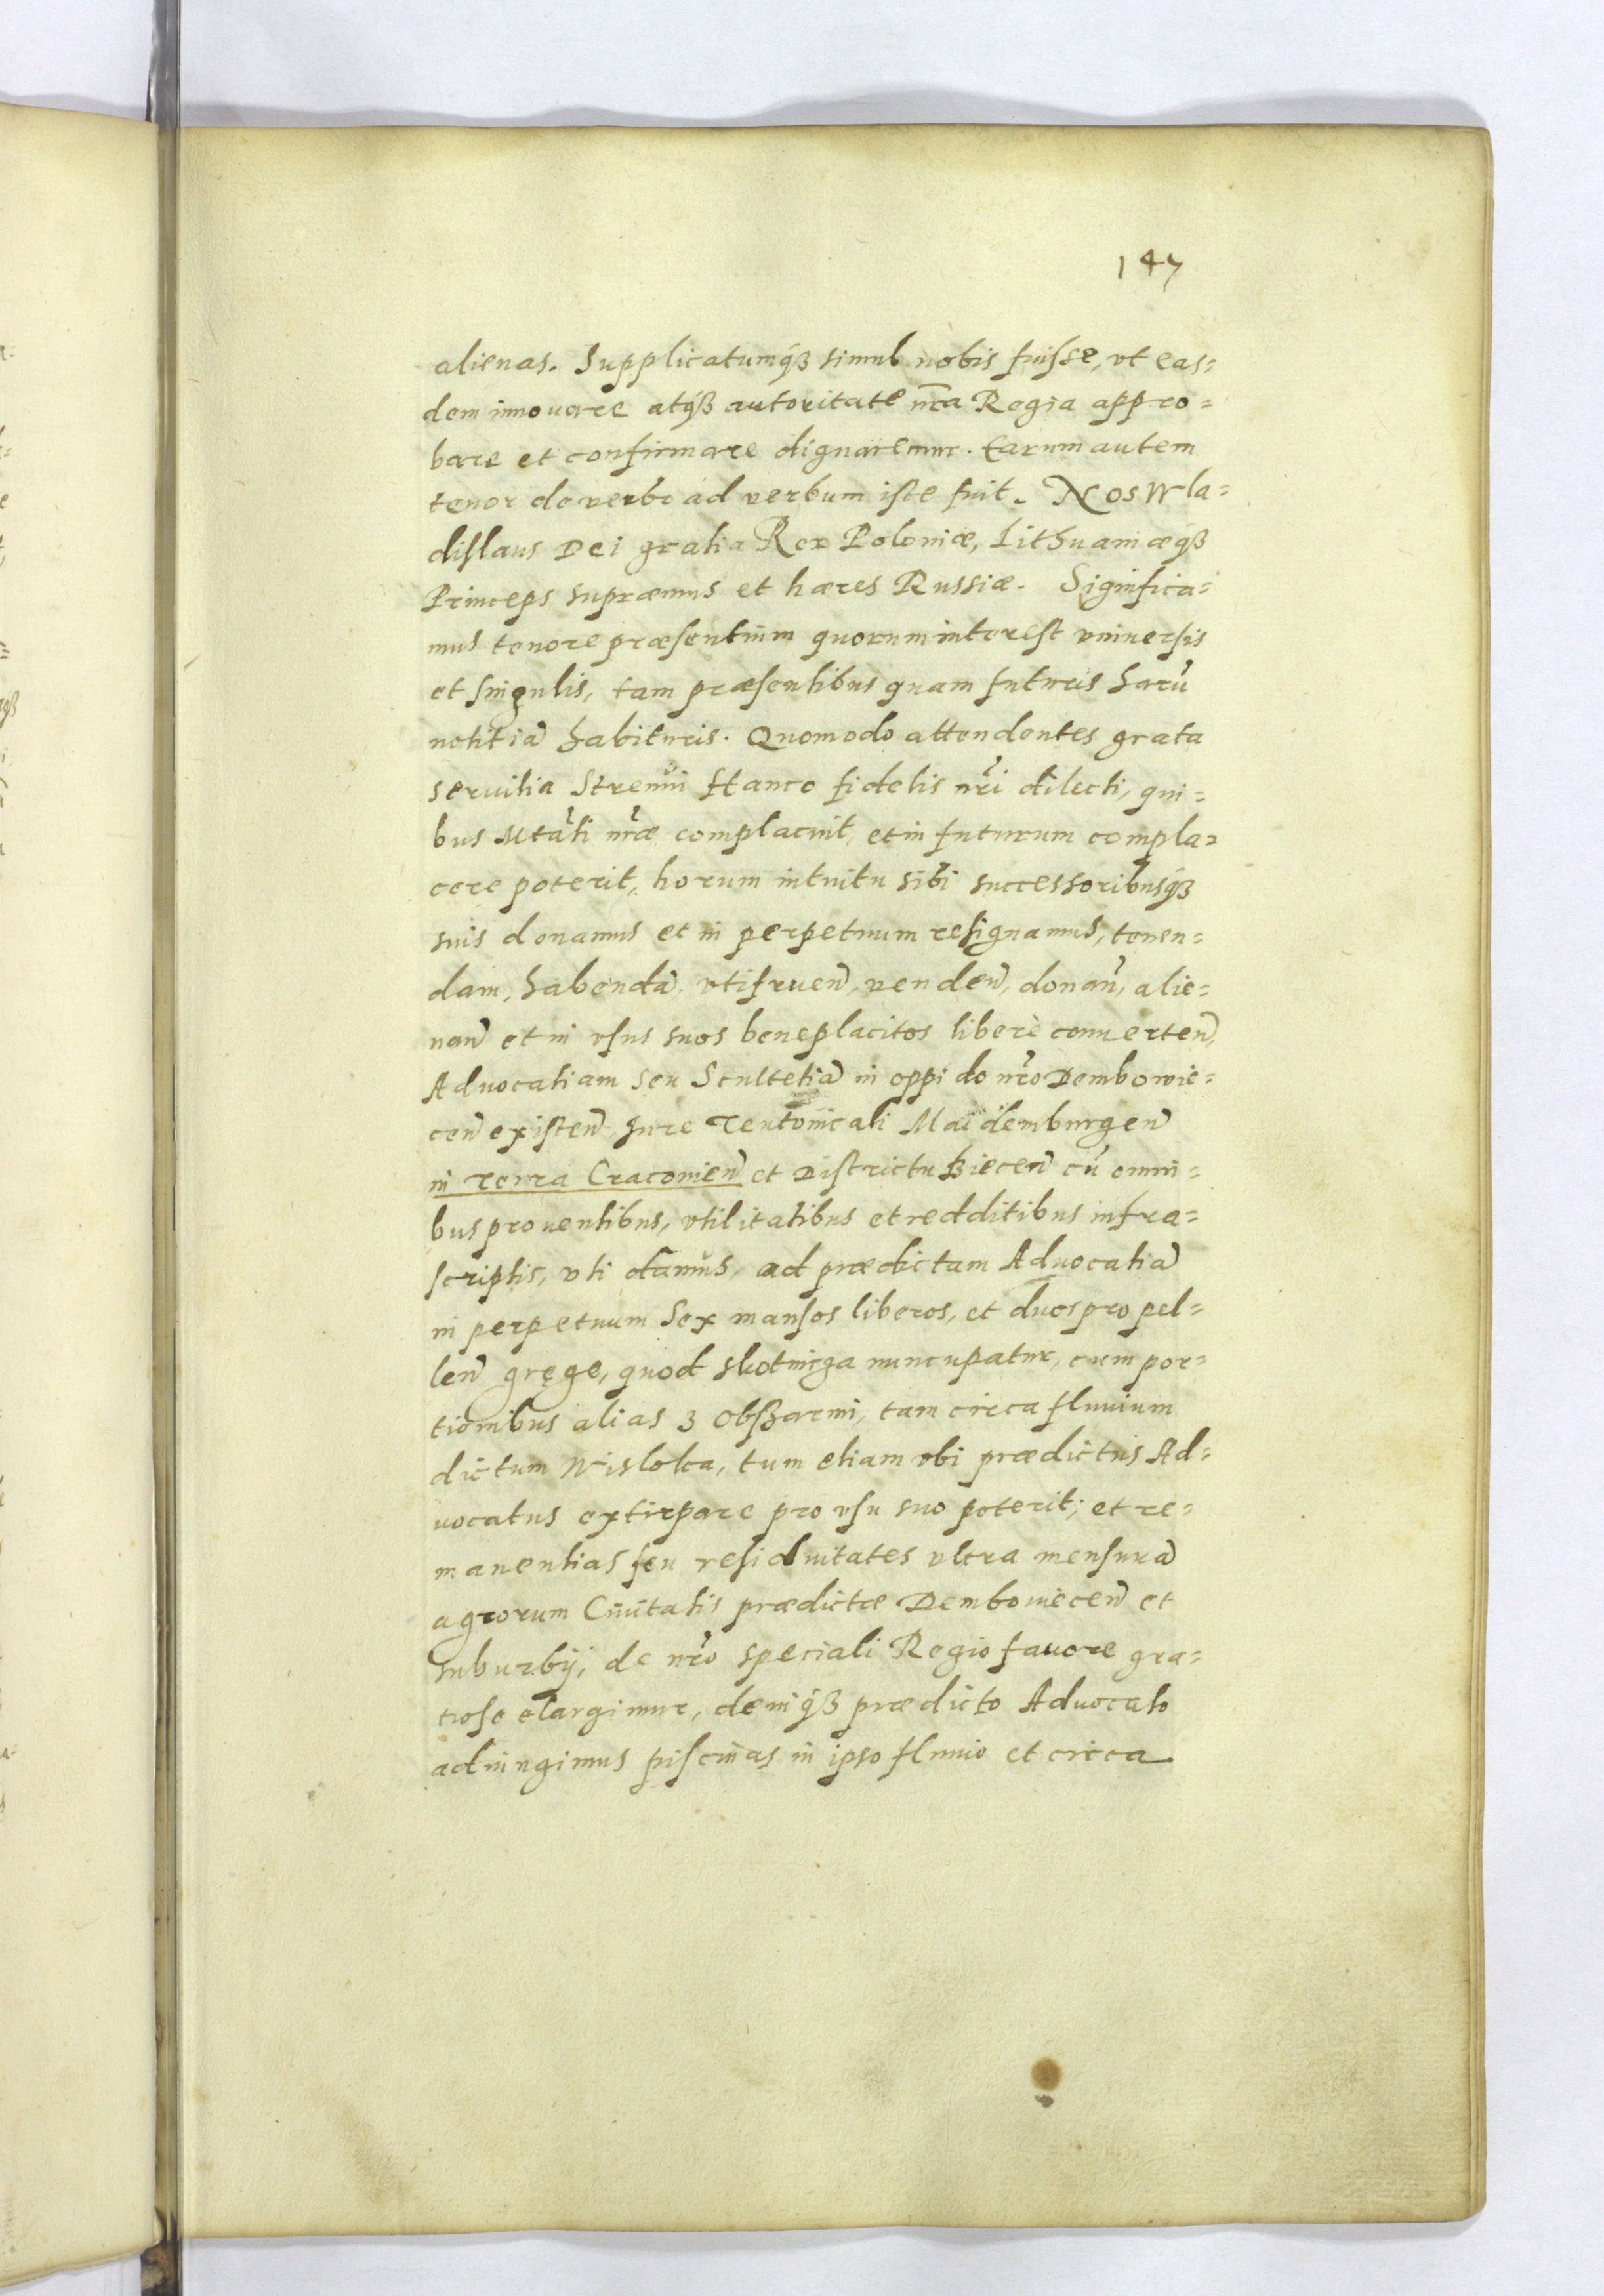 147
alienas. Supplicatumq́ꝫ simul nobis fuisse, vt eas=
dem innouare atq́ꝫ autoritate nr̃a Regia appro=
bare et confirmare dignaremur. Earum autem
tenor de verbo ad verbum iste fuit. Nos Wla=
dislaus Dei gratia Rex Poloniæ, Lithuaniæq́ꝫ
Princeps supræmus et hæres Russiæ. Significa=
mus tenore præsentium quorum interest vniuersis
et singulis, tam præsentibus quam futuris harũ
notitiã habituris. Quomodo attendentes grata
seruitia Strenui Hanco fidelis nr̃i dilecti, qui=
bus Mtãti nr̃æ complacuit, et in futurum compla=
cere poterit, horum intuitu sibi successoribusq́ꝫ
suis donamus et in perpetuum resignamus, tenen=
dam, habendã, vtifruen̄, venden̄, donan̄, alie=
nan̄ et in vsus suos beneplacitos liberè conuerten̄,
Aduocatiam seu Scultetiã in oppido nr̃o Dembowie=
cen̄ existen̄ Jure Teutonicali Maidemburgen̄
in Terra Cracouien̄ et Districtu Biecen̄ cũ omni=
bus prouentibus, vtilitatibus et redditibus infra=
scriptis, vti damus, ad prædictam Aduocatiã
in perpetuum Sex mansos liberos, et duos pro pel=
len̄ gręge, quod skotnicza nuncupatur, cum por=
tionibus alias z Obszarmi, tam circa fluuium
dictum Wisloka, tum etiam vbi prædictus Ad=
uocatus extirpare pro vsu suo poterit; et re=
manentias seu residuitates vltra mensurã
agrorum Ciuitatis prædictæ Dembowiecen̄ et
suburbij, de nr̃o speciali Regio fauore gra=
tiose elargimur, deniq́ꝫ prædicto Aduocato
adiungimus piscinas in ipso fluuio et circa